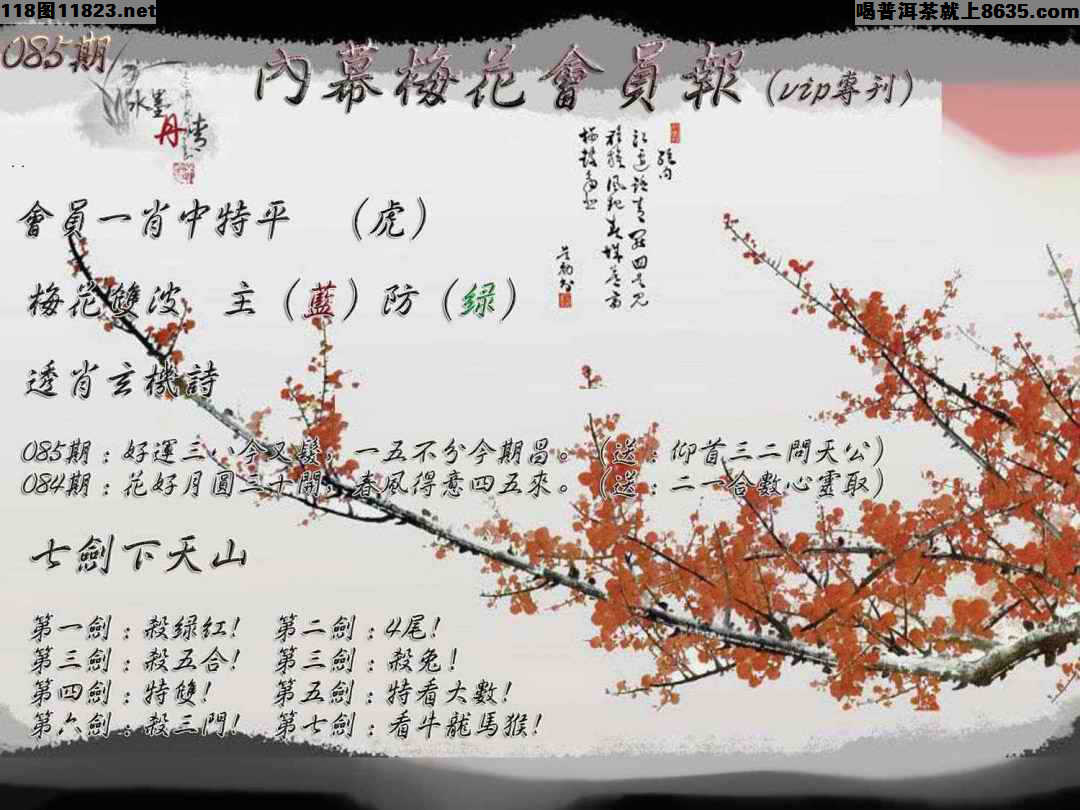 118图11823.net
喝普洱茶就上8635.com
085期
內幕梅花會員報(vip專刊)
水墨
丹青
會員一肖中特平 (虎)
梅花雙波 主(藍)防(绿)
透肖玄機詩
085期:好運三八今又髮,一五不分今期昌。(送:仰首三二問天公)
084期:花好月圓三十開,春風得意四五來。(送:二一合數心靈取)
七劍下天山
第一劍:殺绿红! 第二劍:4尾!
第三劍:殺五合! 第三劍:殺兔!
第四劍:特雙! 第五劍:特看大數!
第六劍:殺三門! 第七劍:看牛龍馬猴!